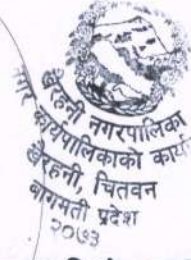 खैरहनी नगरपालिका
नगर कार्यपालिकाको कार्या
खैरहनी, चितवन
बागमती प्रदेश
२०७३